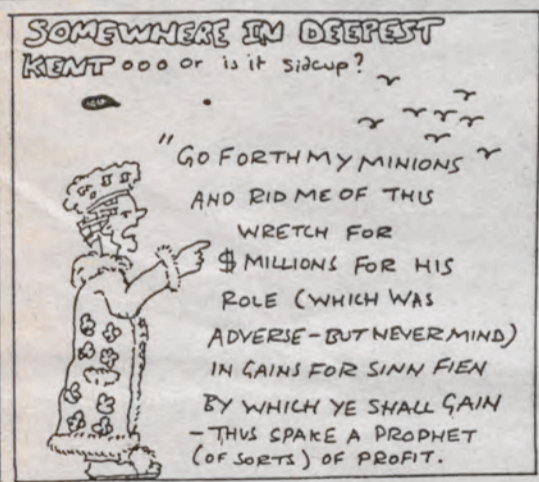 SOMEWHERE IN DEEPEST
KENT ooo or is it sidcup?
"GO FORTH MY MINIONS
AND RID ME OF THIS
WRETCH FOR
$ MILLIONS FOR HIS
ROLE (WHICH WAS
ADVERSE - BUT NEVER MIND)
IN GAINS FOR SINN FIEN
BY WHICH YE SHALL GAIN
- THUS SPAKE A PROPHET
(OF SORTS) OF PROFIT.